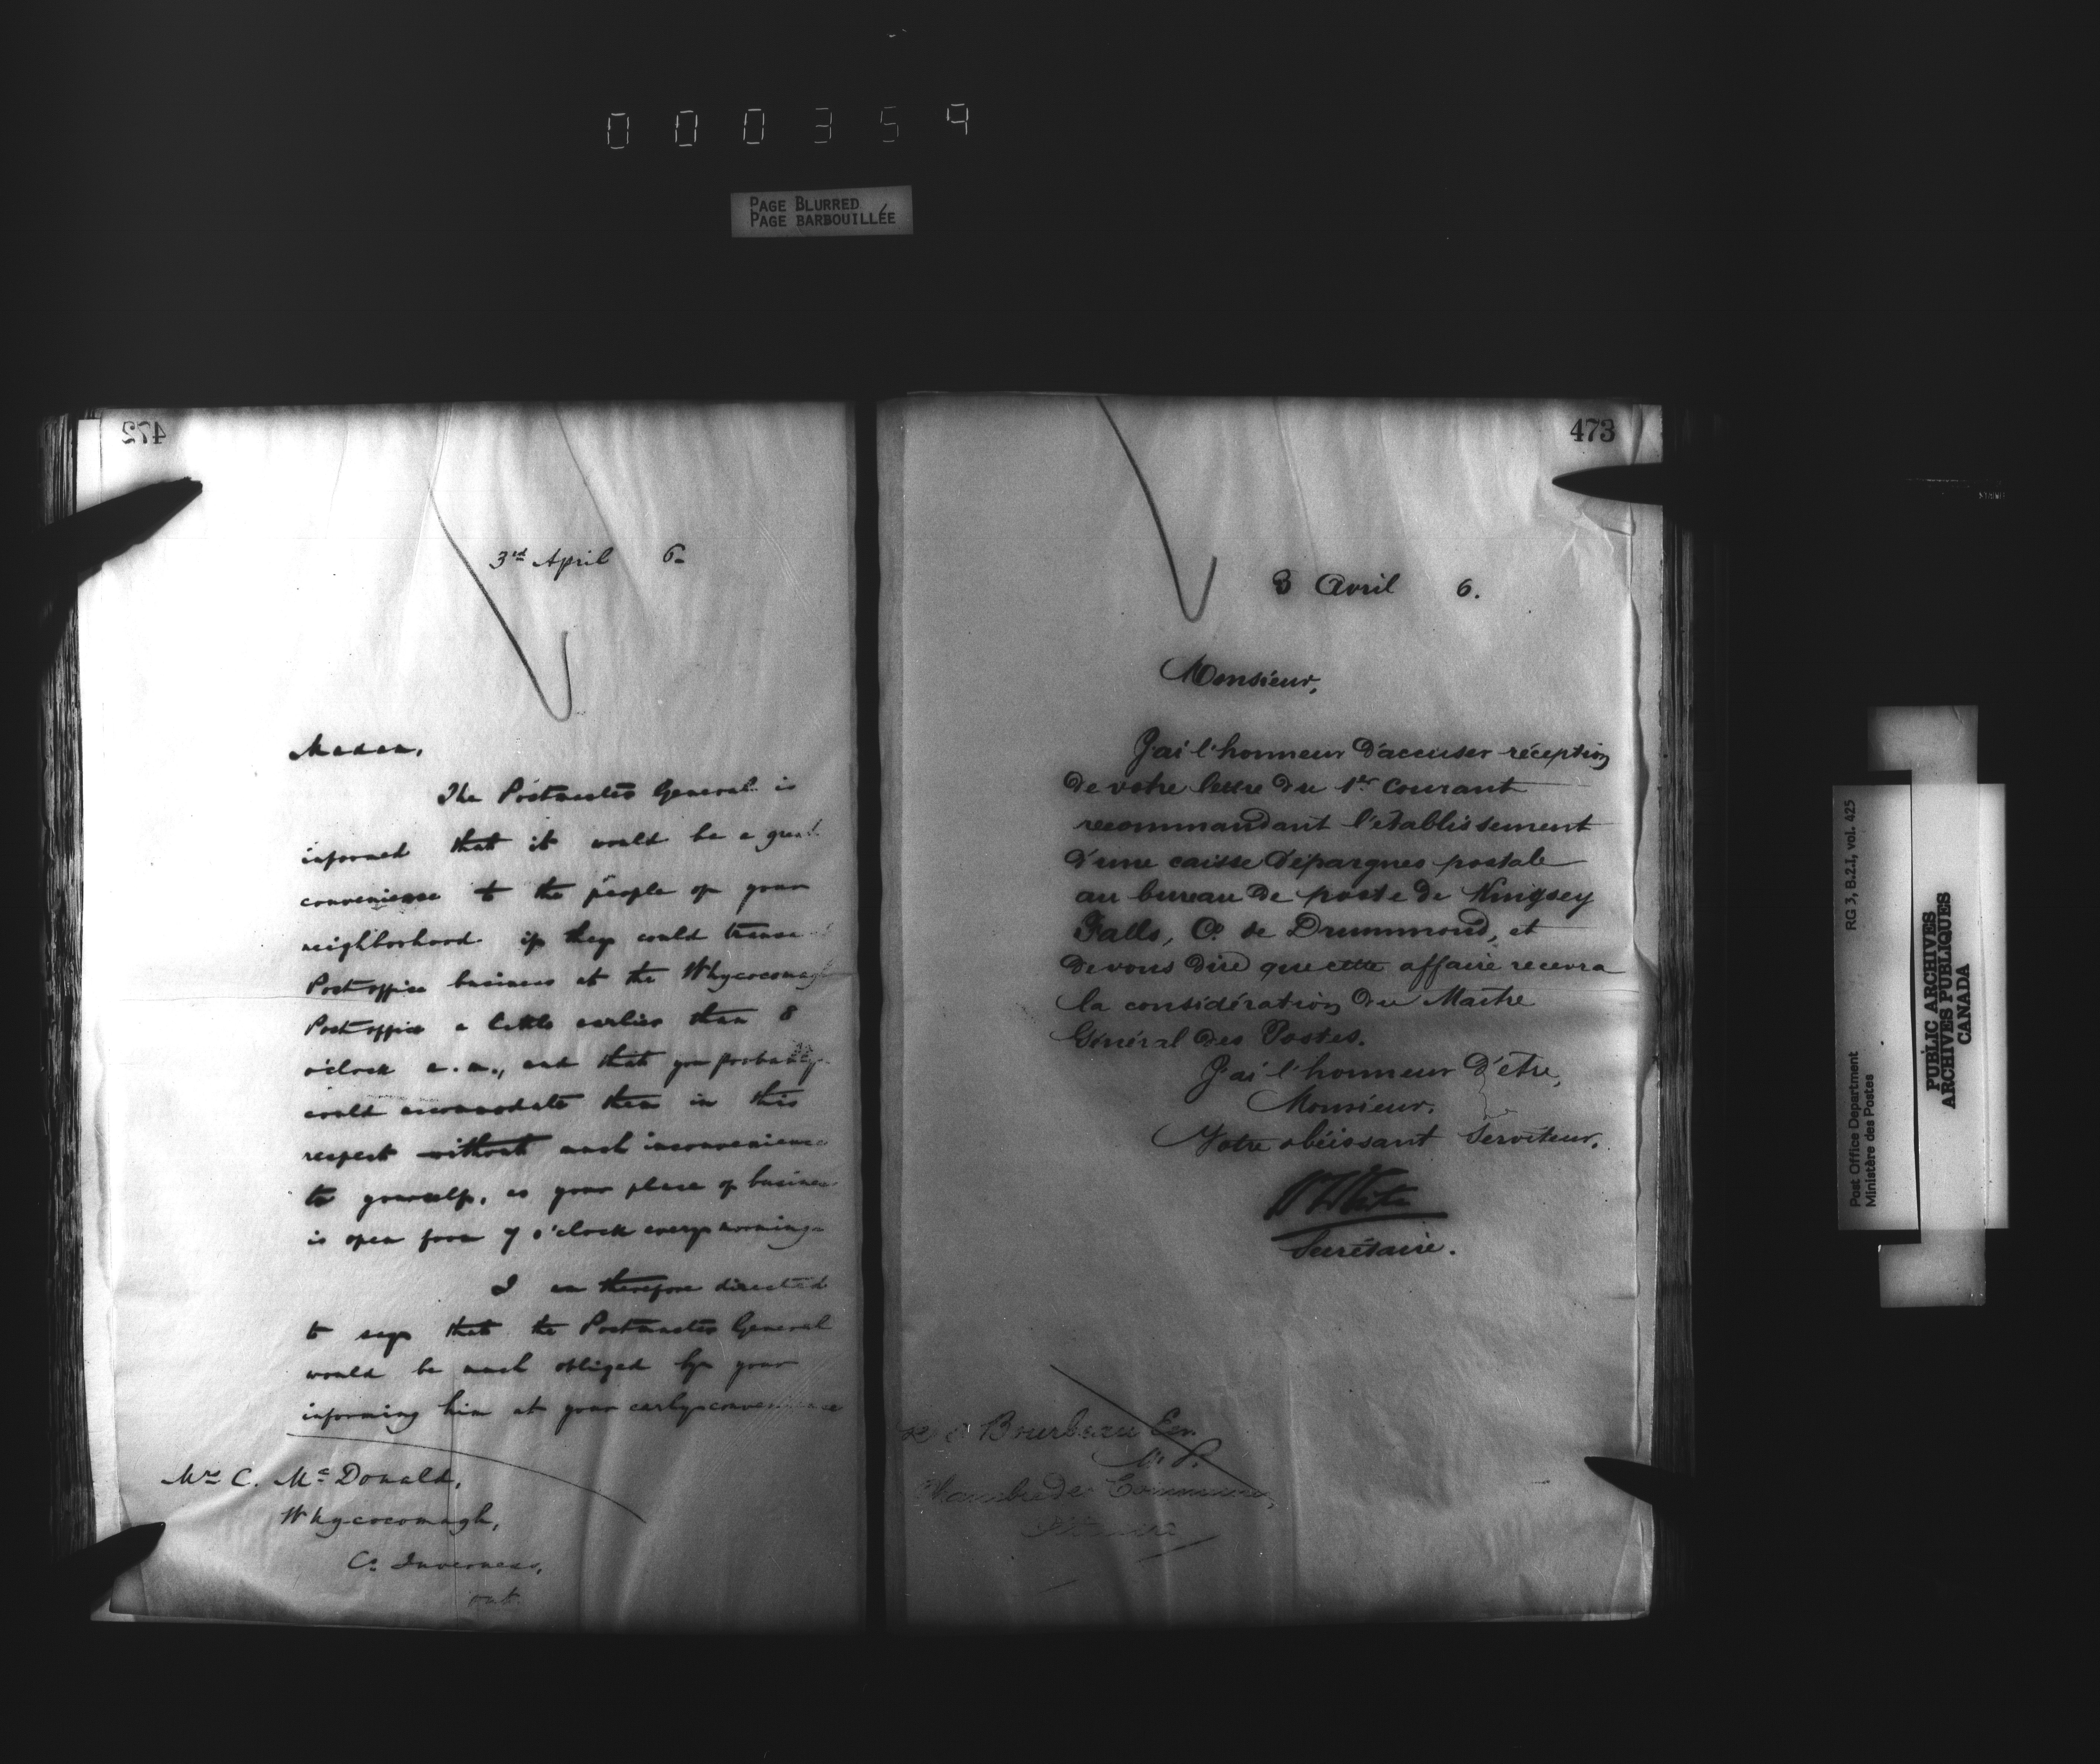 000359
PAGE BLURRED
PAGE BARBOUILLÉE
472
3rd April 6-
Madam,
The Postmaster General is
informed that it would be a great
convenience to the people of your
neighborhood if they could transact
Post office business at the Whycocomagh
Post office a little earlier than 8
o'clock a.m., and that you probably
could accomodate them in this
respect without much inconvenience
to yourself, as your place of business
is open from 7 o'clock every morning.
I am therefore directed
to say that the Postmaster General
would be much obliged by your
informing him at your early convenience
Mrs C. McDonald,
Whycocomagh,
Co Inverness,
473
3 Avril 6.
Monsieur,
J'ai l'honneur d'accuser réception
de votre lettre du 1er Courant
recommandant l'établissement
d'une caisse d'épargnes postale
au bureau de poste de Kingsey
Falls, Co. de Drummond, et
de vous dire que cette affaire recevra
la considération du Maitre
Général des Postes.
J'ai l'honneur d'être,
Monsieur,
Votre obéissant Serviteur,
W White
Secrétaire.
Bourbeau Ecr.
M. P.
Chambre des Communes,
Post Office Department
Ministère des Postes
RG 3, B.2.I, vol. 425
PUBLIC ARCHIVES
ARCHIVES PUBLIQUES
CANADA